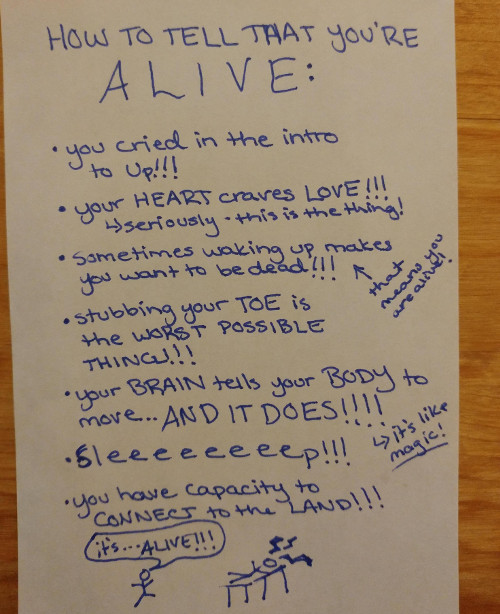 HOW TO TELL THAT YOU'RE
ALIVE:
• you cried in the intro
to Up!!!
• your HEART craves LOVE!!!
↳ seriously - this is the thing!
• sometimes waking up makes
you want to be dead!!!
↖ that
means you
are alive!
• stubbing your TOE is
the WORST POSSIBLE
THING!!!
• your BRAIN tells your BODY to
move... AND IT DOES!!!!
↳ it's like
magic!
• Sleeeeeeeep!!!
• you have capacity to
CONNECT to the LAND!!!
it's...ALIVE!!!